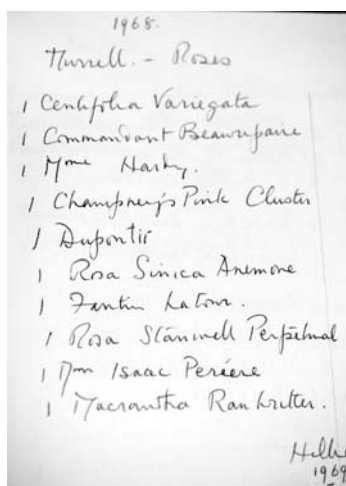 1968.
Murrell. - Roses
1 Centifolia Variegata
1 Commandant Beaurepaire
1 Mme Hardy.
1 Champney's Pink Cluster
1 Dupontii
1 Rosa Sinica Anemone
1 Fantin Latour.
1 Rosa Stanwell Perpetual
1 Mme Isaac Periere
1 Macrantha Raubritter.
1969